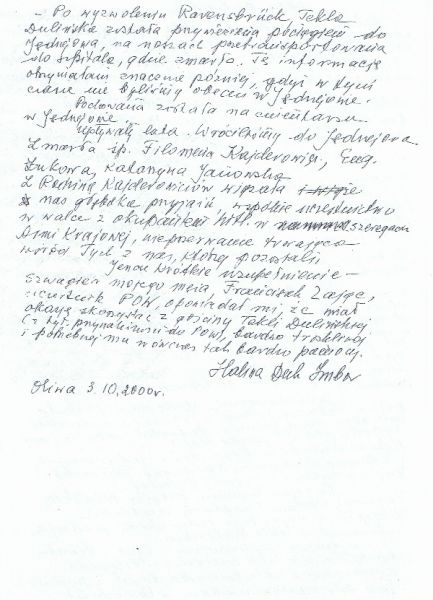 – Po wyzwoleniu Ravensbrück, Tekla
Dulińska została przywieziona pociągiem do
Jędrzejowa, na noszach przetransportowana
do szpitala, gdzie zmarła. Tę informację
otrzymałam znacznie później, gdyż w tym
czasie nie byliśmy obecni w Jędrzejowie.
Pochowana została na cmentarzu
w Jędrzejowie.
Upłynęły lata. Wróciliśmy do Jędrzejowa.
Zmarła śp. Filomena Kajderowicz, Ewa
Żukowa, Katarzyna Janowska
Z Rodziną Kajderowiczów wiązała
nas głęboka przyjaźń, wspólne uczestnictwo
w walce z okupantem w szeregach
Armii Krajowej, nieprzerwanie trwająca
wśród Tych z nas, którzy pozostali
Jeszcze krótkie uzupełnienie –
Szwagier mojego męża Franciszek Zając,
POW, opowiadał mi, że miał
okazję skorzystać z gościny Tekli Dulińskiej
(z tyt. przynależności do POW), bardzo troskliwej
i potrzebnej mu wówczas tak bardzo pomocy.
Halina Duk
Oliwa 3.10.2000r.